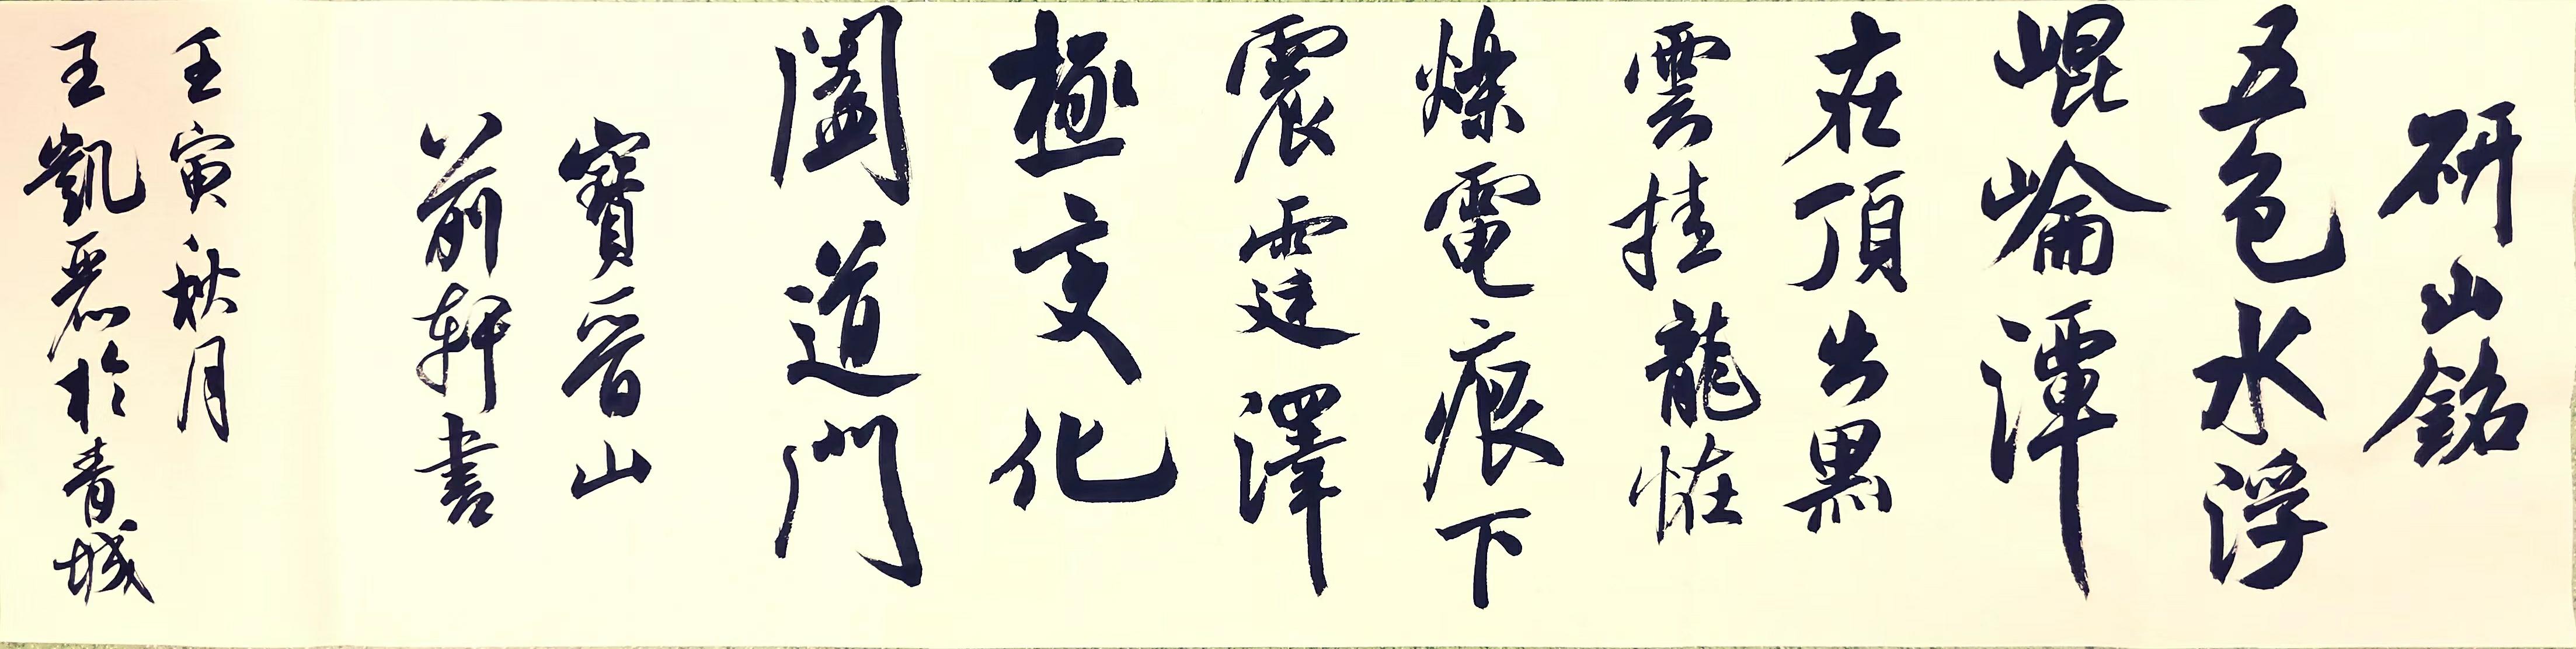 研山銘
五色水浮
崐崘潭
在頂出黑
雲挂龍恠
爍電痕下
震霆澤
極變化
闔道門
寶晉山
前軒書
壬寅秋月
王凱於青城